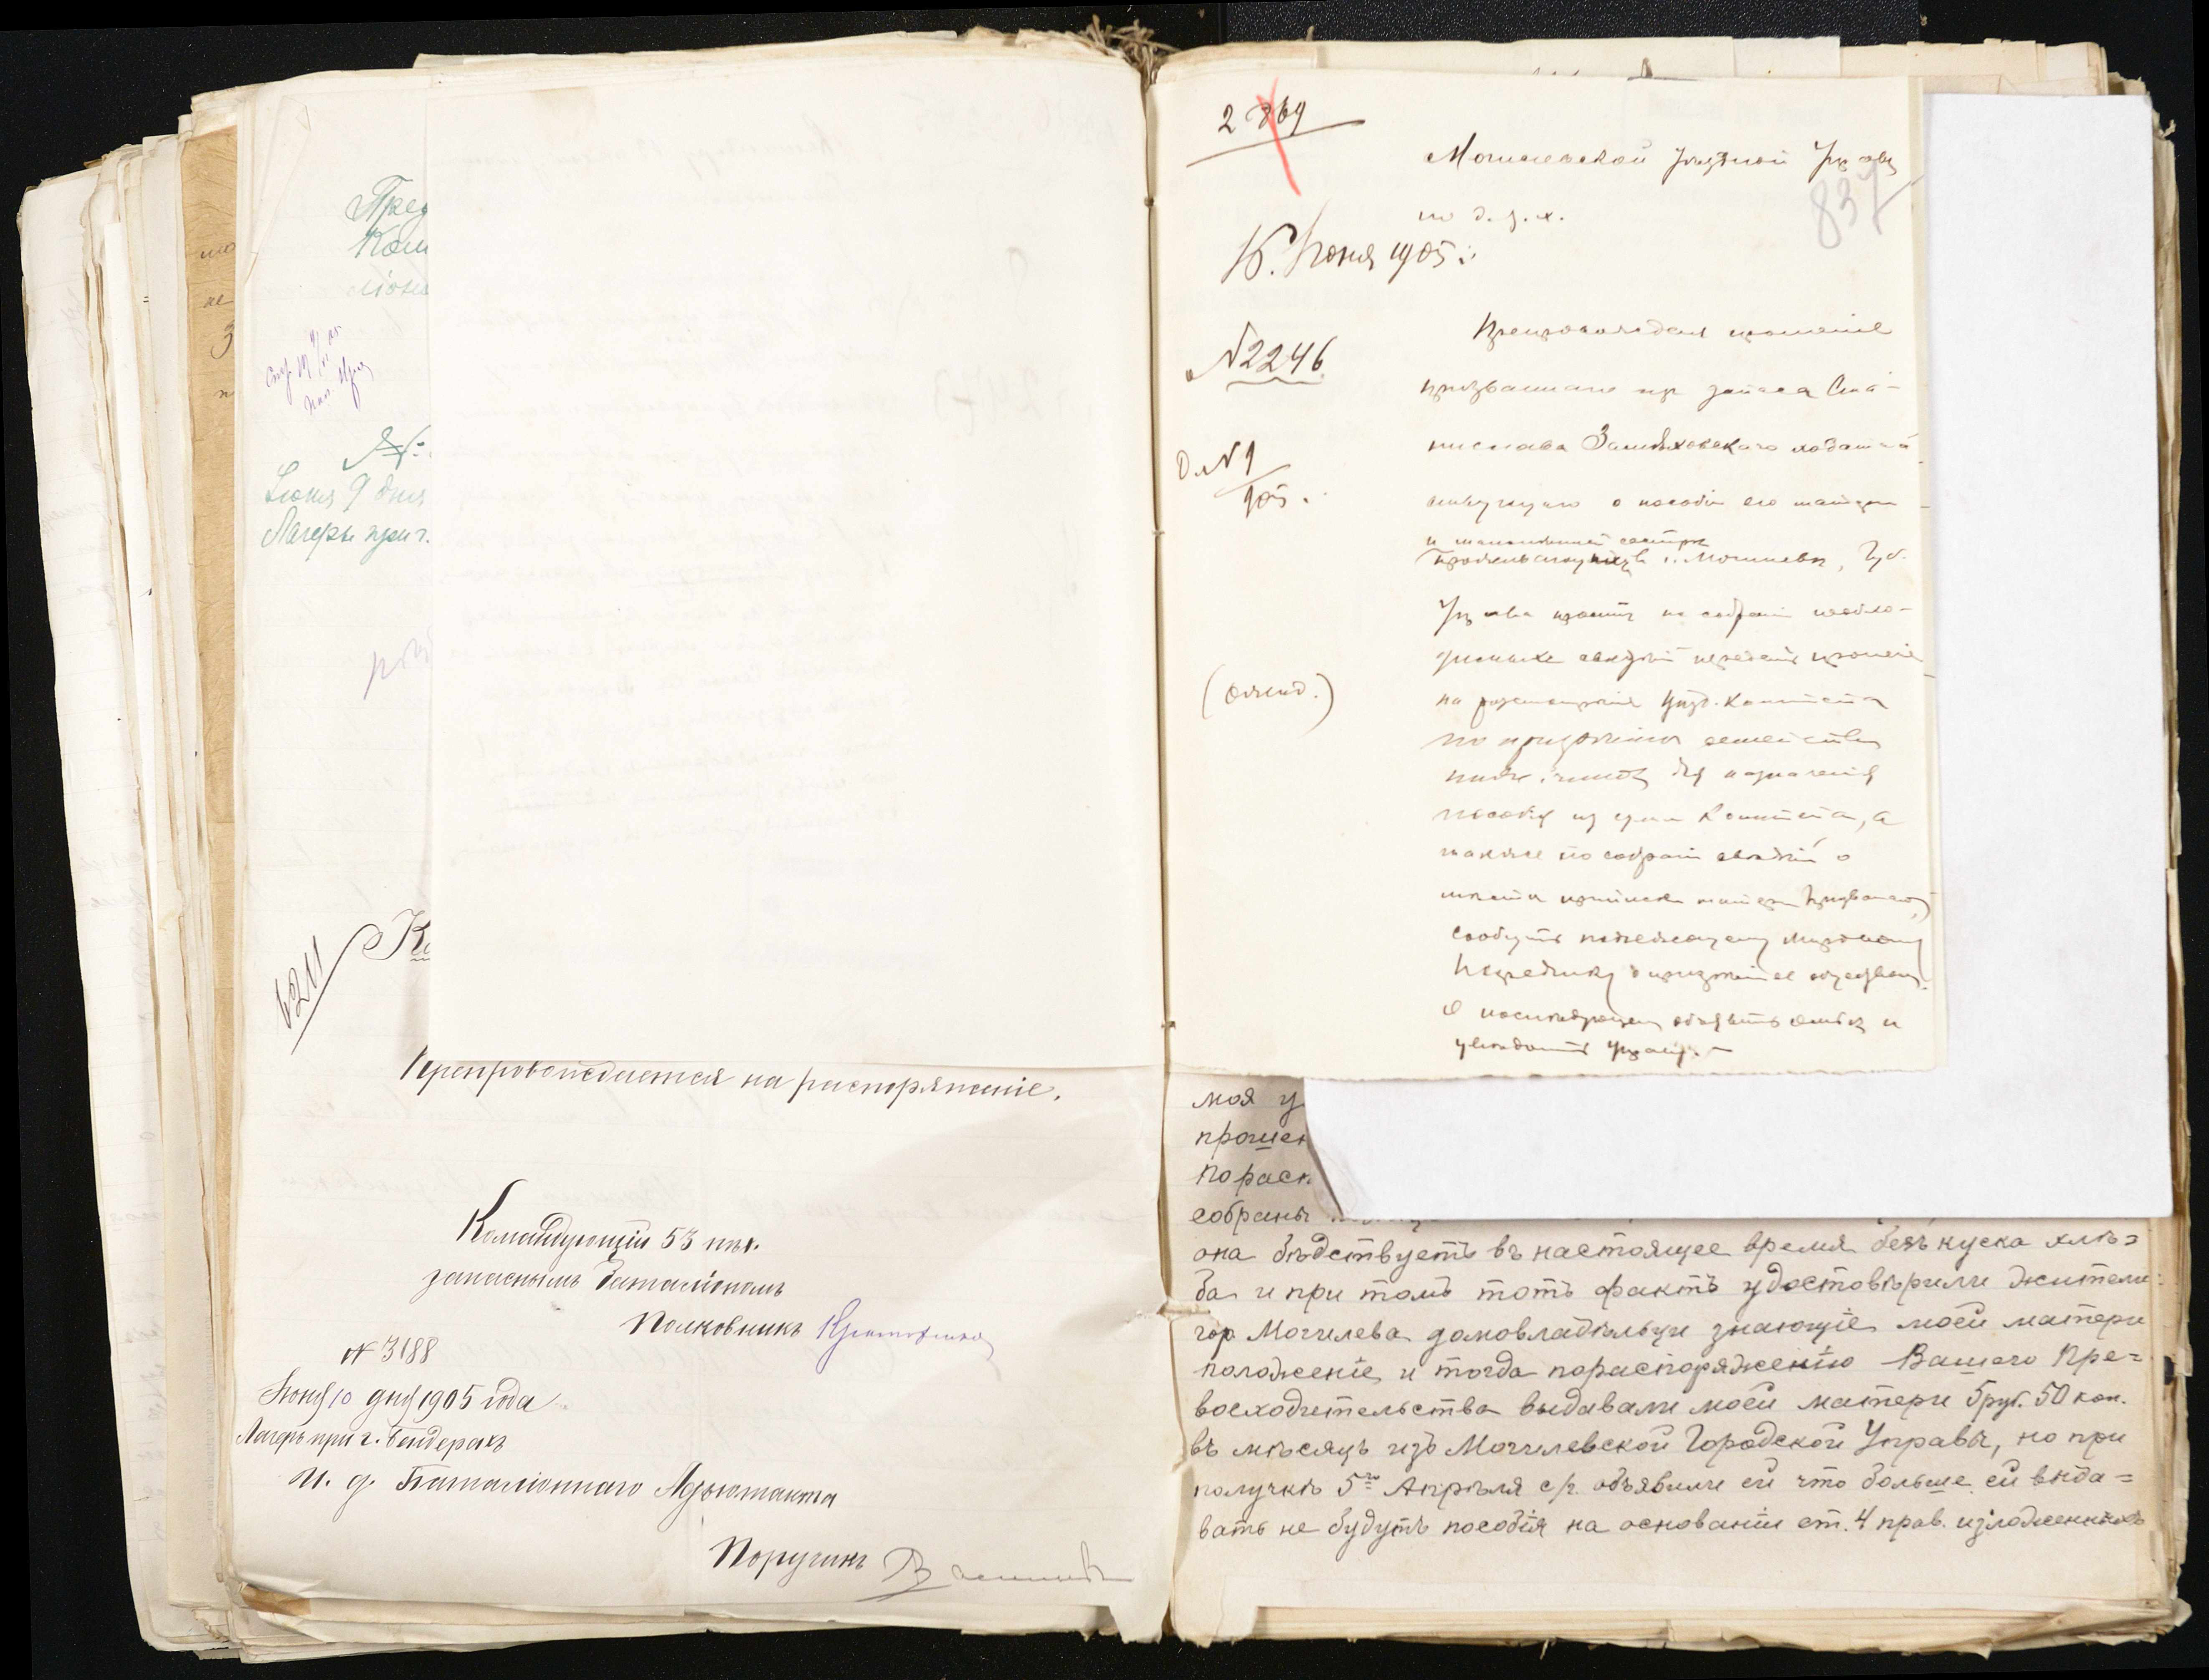 Пред
Ком
№
Іюня 9 дня
Лагерь при г.
6211
Препровождается на распоряженіе.
Командующій 53 пѣх.
запаснымъ баталіономъ
Полковникъ
№ 3188
Іюня 10 дня 1905 года
Лагерь при г. Бендерахъ
И. д. Баталіоннаго Адъютанта
Поручикъ
2 869
Могилевской уѣздной Управѣ
837
по д. з. х.
16. Іюня 1905 г.
№ 2246
Препровождая прошеніе
призваннаго изъ запаса Ста-
нислава
Д. № 1
905.
о пособіи его матери
и малолѣтней сестрѣ
г. Могилевѣ, Губ.
Управа проситъ по собраніи необхо-
димыхъ свѣдѣній передать прошеніе
на разсмотрѣніе Уѣзд. Комитета
по призрѣнію семействъ
нижн. чиновъ для назначенія
пособія изъ суммъ Комитета, а
также по собраніи свѣдѣній о
мѣстѣ приписки матери призваннаго,
сообщить подлежащему Мировому
Посреднику о призрѣніи ее обществомъ.
О послѣдующемъ объявить и
увѣдомить Управу.
моя у
прошен
по расп
собраны
она бѣдствуетъ въ настоящее время безъ куска хлѣ=
ба и при томъ тотъ фактъ удостовѣрили жители
гор Могилева домовладѣльцы знающіе моей матери
положеніе и тогда по распоряженію Вашего Пре=
восходительства выдавали моей матери 5 руб. 50 коп.
въ мѣсяцъ изъ Могилевской Городской Управы, но при
получкѣ 5го Апрѣля с/г. объявили ей что больше ей выда=
вать не будутъ пособія на основаніи ст. 4 прав. изложенныхъ